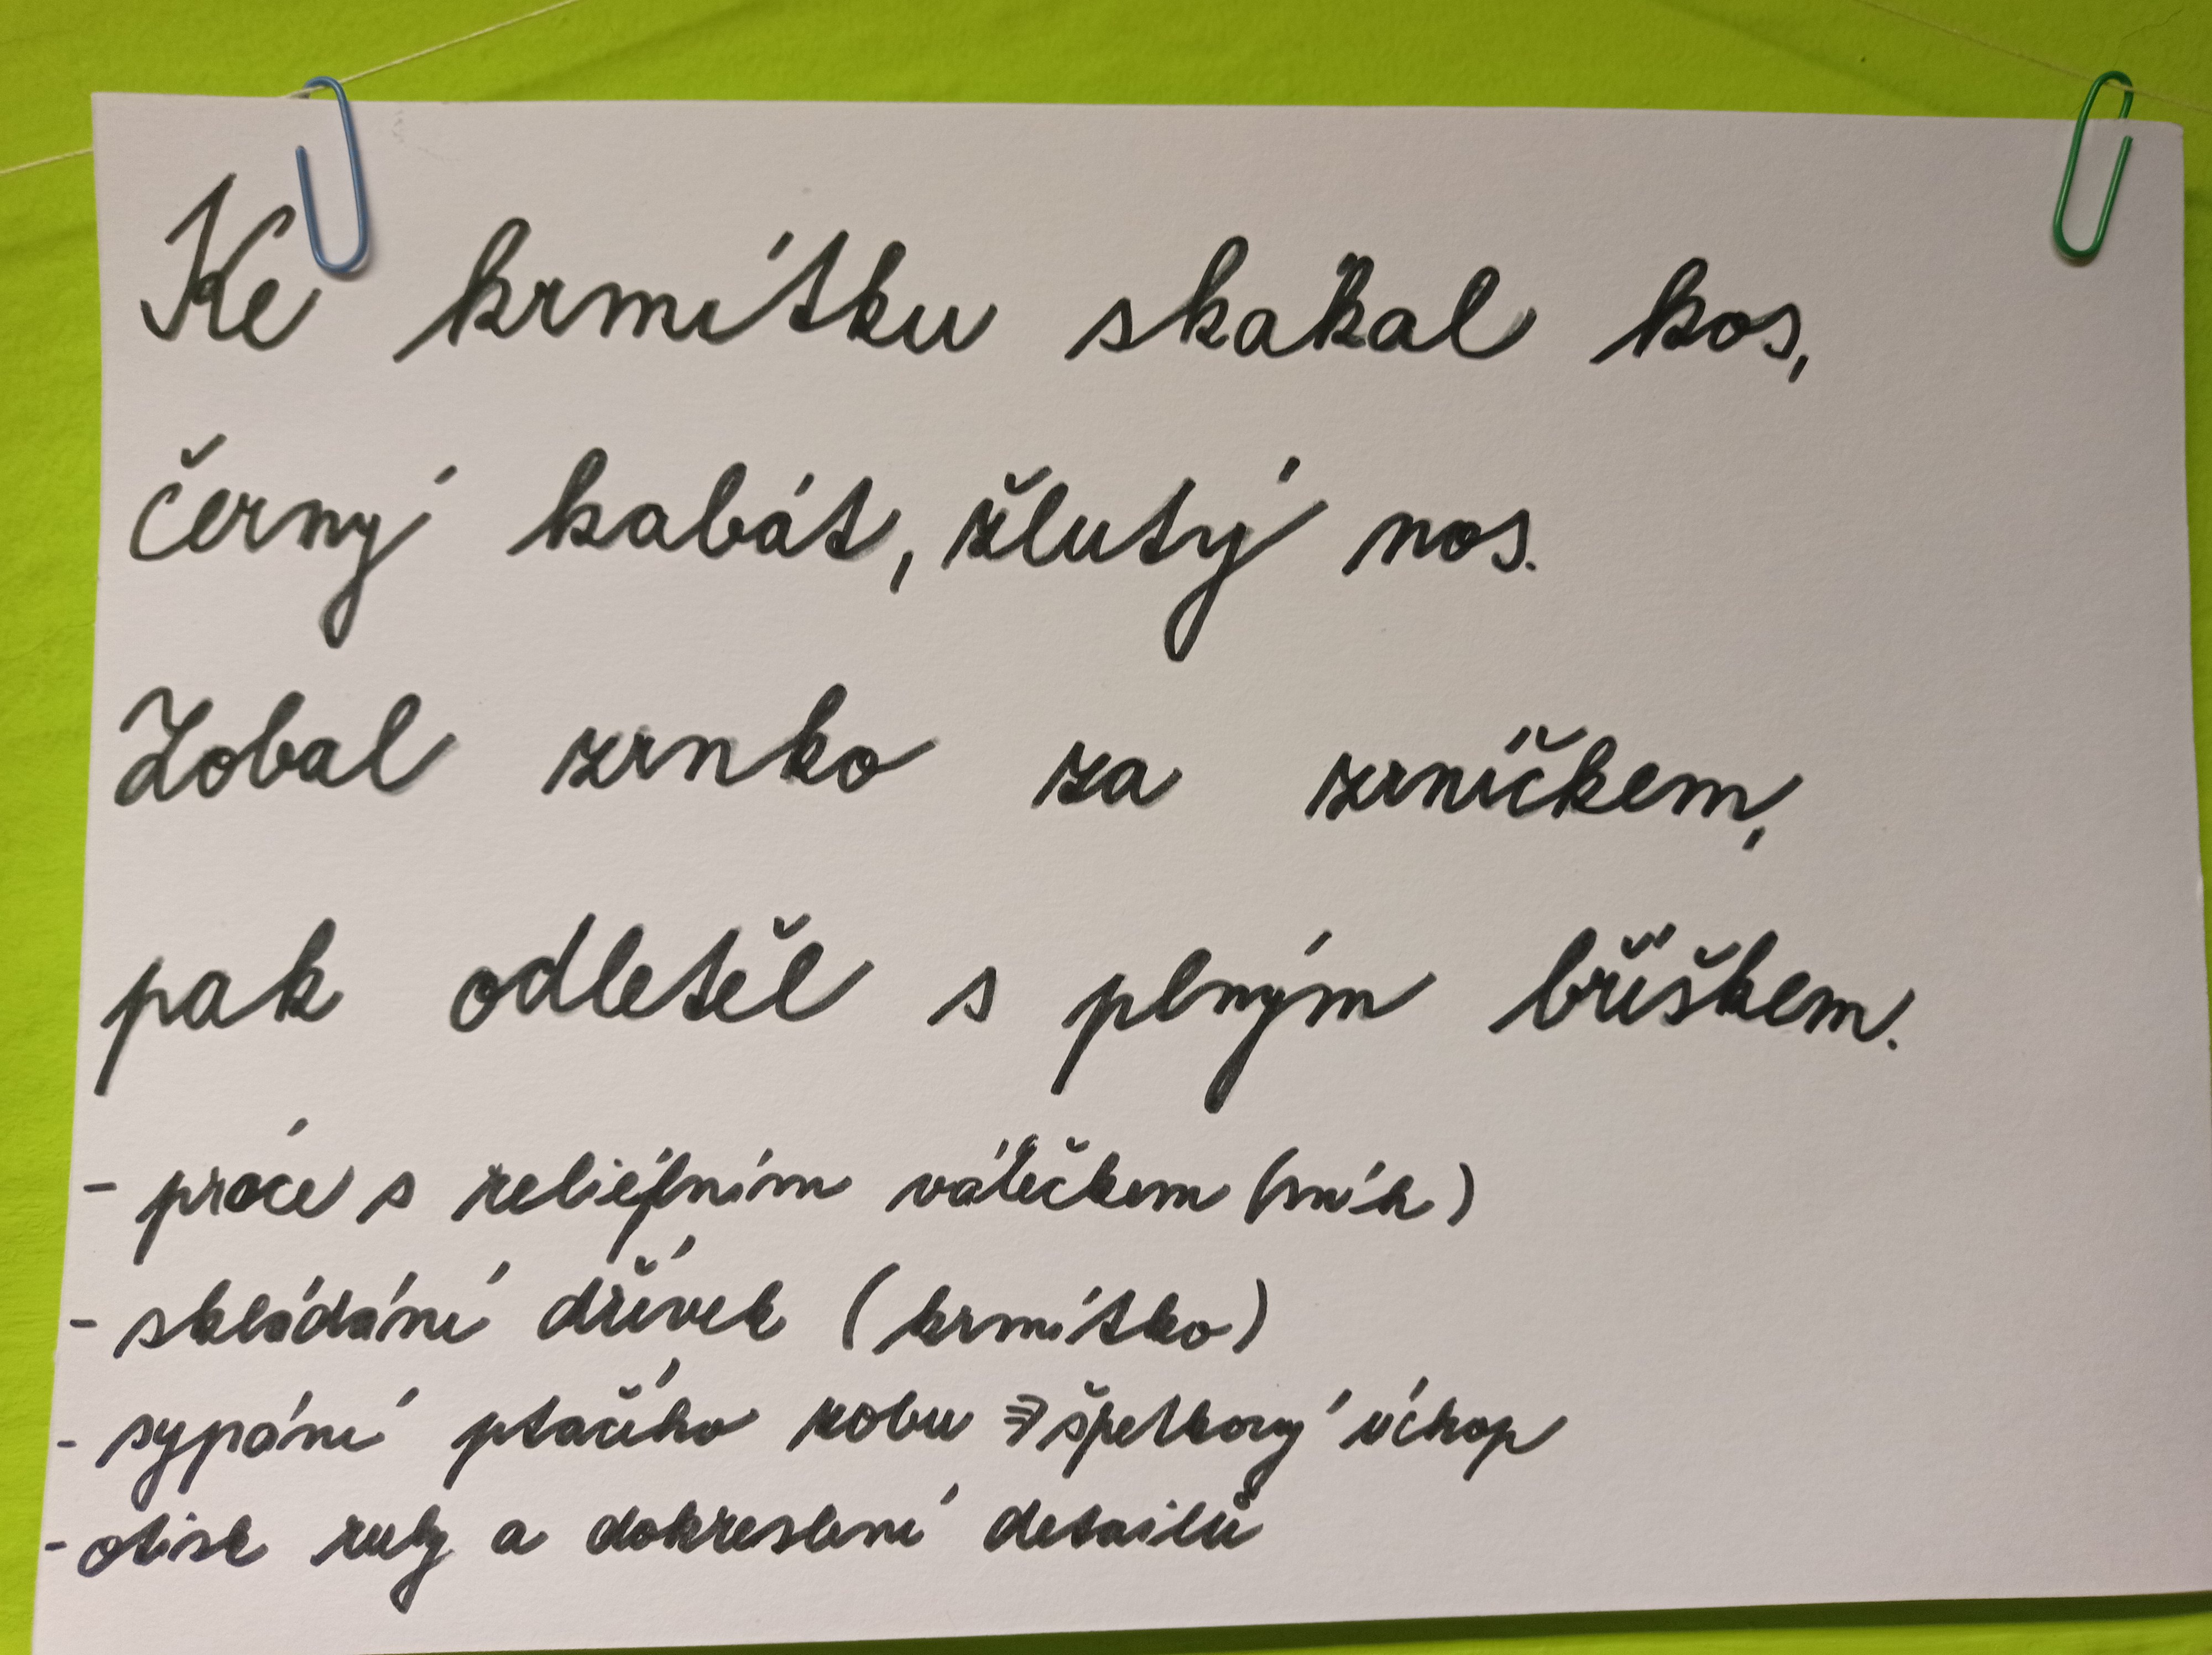 Ke krmítku skákal kos,
černý kabát, žlutý nos.
Zobal zrnko za zrníčkem,
pak odletěl s plným bříškem.
- práce s reliéfním válečkem (sníh)
- skládání dřívek (krmítko)
- sypání ptačího zobu ⇒ špetkový úchop
- otisk ruky a dokreslení detailů